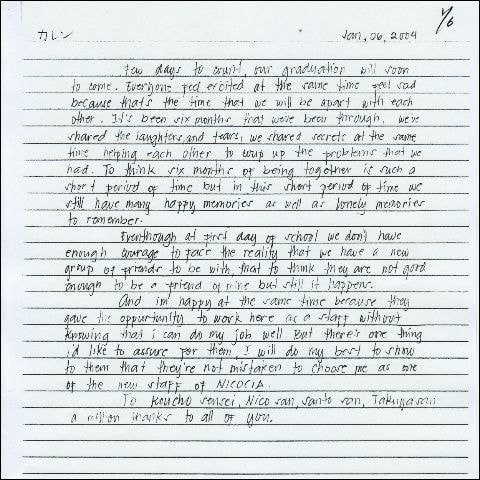 1/6
カレン Jan, 06, 2004
Few days to count, our graduation will soon
to come. Everyone feel excited at the same time feel sad
because that's the time that we will be apart with each
other. It's been six months that we're been through, we're
shared the laughters, and tears, we shared secrets at the same
time helping each other to wup up the problems that we
had. To think six months of being together is such a
short period of time but in this short period of time we
still have many happy memories as well as lonely memories
to remember.
Eventhough at first day of school we don't have
enough courage to face the reality that we have a new
group of friends to be with, that to think they are not good
enough to be a friend of mine but still it happens.
And im' happy at the same time because they
gave the opportunity to work here as a staff without
knowing that i can do my job well But there's one thing
i'd like to assure for them, I will do my best to show
to them that they're not mistaken to choose me as one
of the new staff of NICOCIA.
To Koucho sensei, Nico san, santo san, Takuya san
a million thanks to all of you.